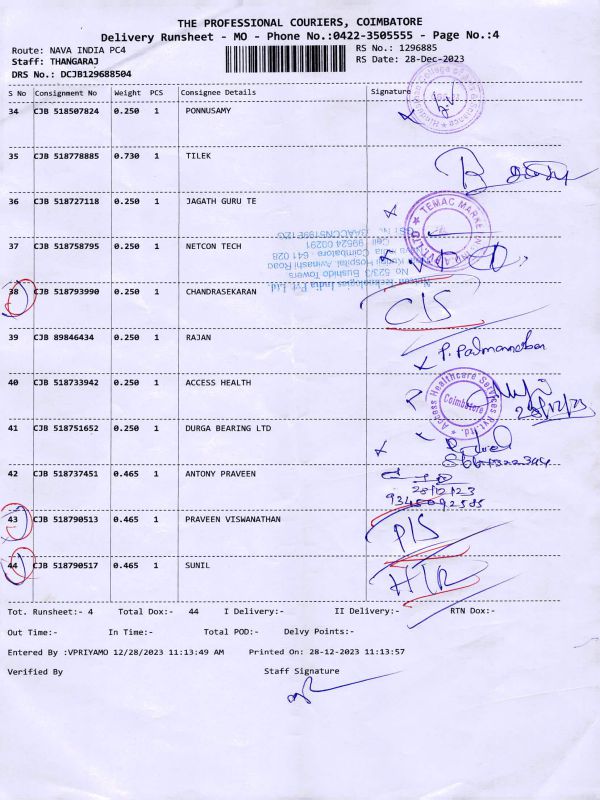 THE PROFESSIONAL COURIERS, COIMBATORE
Delivery Runsheet - MO - Phone No.:0422-3505555 - Page No.:4
Route: NAVA INDIA PC4 RS No.: 1296885
Staff: THANGARAJ RS Date: 28-Dec-2023
DRS No.: DCJB129688504
S No Consignment No Weight PCS Consignee Details Signature
34 CJB 518507824 0.250 1 PONNUSAMY
35 CJB 518778885 0.730 1 TILEK
36 CJB 518727118 0.250 1 JAGATH GURU TE
TEMAC MARKE
37 CJB 518758795 0.250 1 NETCON TECH
Netcon Technologies India Pvt. Ltd.
No 523/2 Bushido Towers
Hospital, Avinashi Road
Nava India Coimbatore 641 028
38 CJB 518793990 0.250 1 CHANDRASEKARAN C/S
39 CJB 89846434 0.250 1 RAJAN P. Padmanaban
40 CJB 518733942 0.250 1 ACCESS HEALTH 28/12/23
Access Healthcare Services Pvt. Ltd.
Coimbatore
41 CJB 518751652 0.250 1 DURGA BEARING LTD
42 CJB 518737451 0.465 1 ANTONY PRAVEEN
28/12/23
9345092585
43 CJB 518790513 0.465 1 PRAVEEN VISWANATHAN P/S
44 CJB 518790517 0.465 1 SUNIL
Tot. Runsheet:- 4 Total Dox:- 44 I Delivery:- II Delivery:- RTN Dox:-
Out Time:- In Time:- Total POD:- Delvy Points:-
Entered By :VPRIYAMO 12/28/2023 11:13:49 AM Printed On: 28-12-2023 11:13:57
Verified By Staff Signature